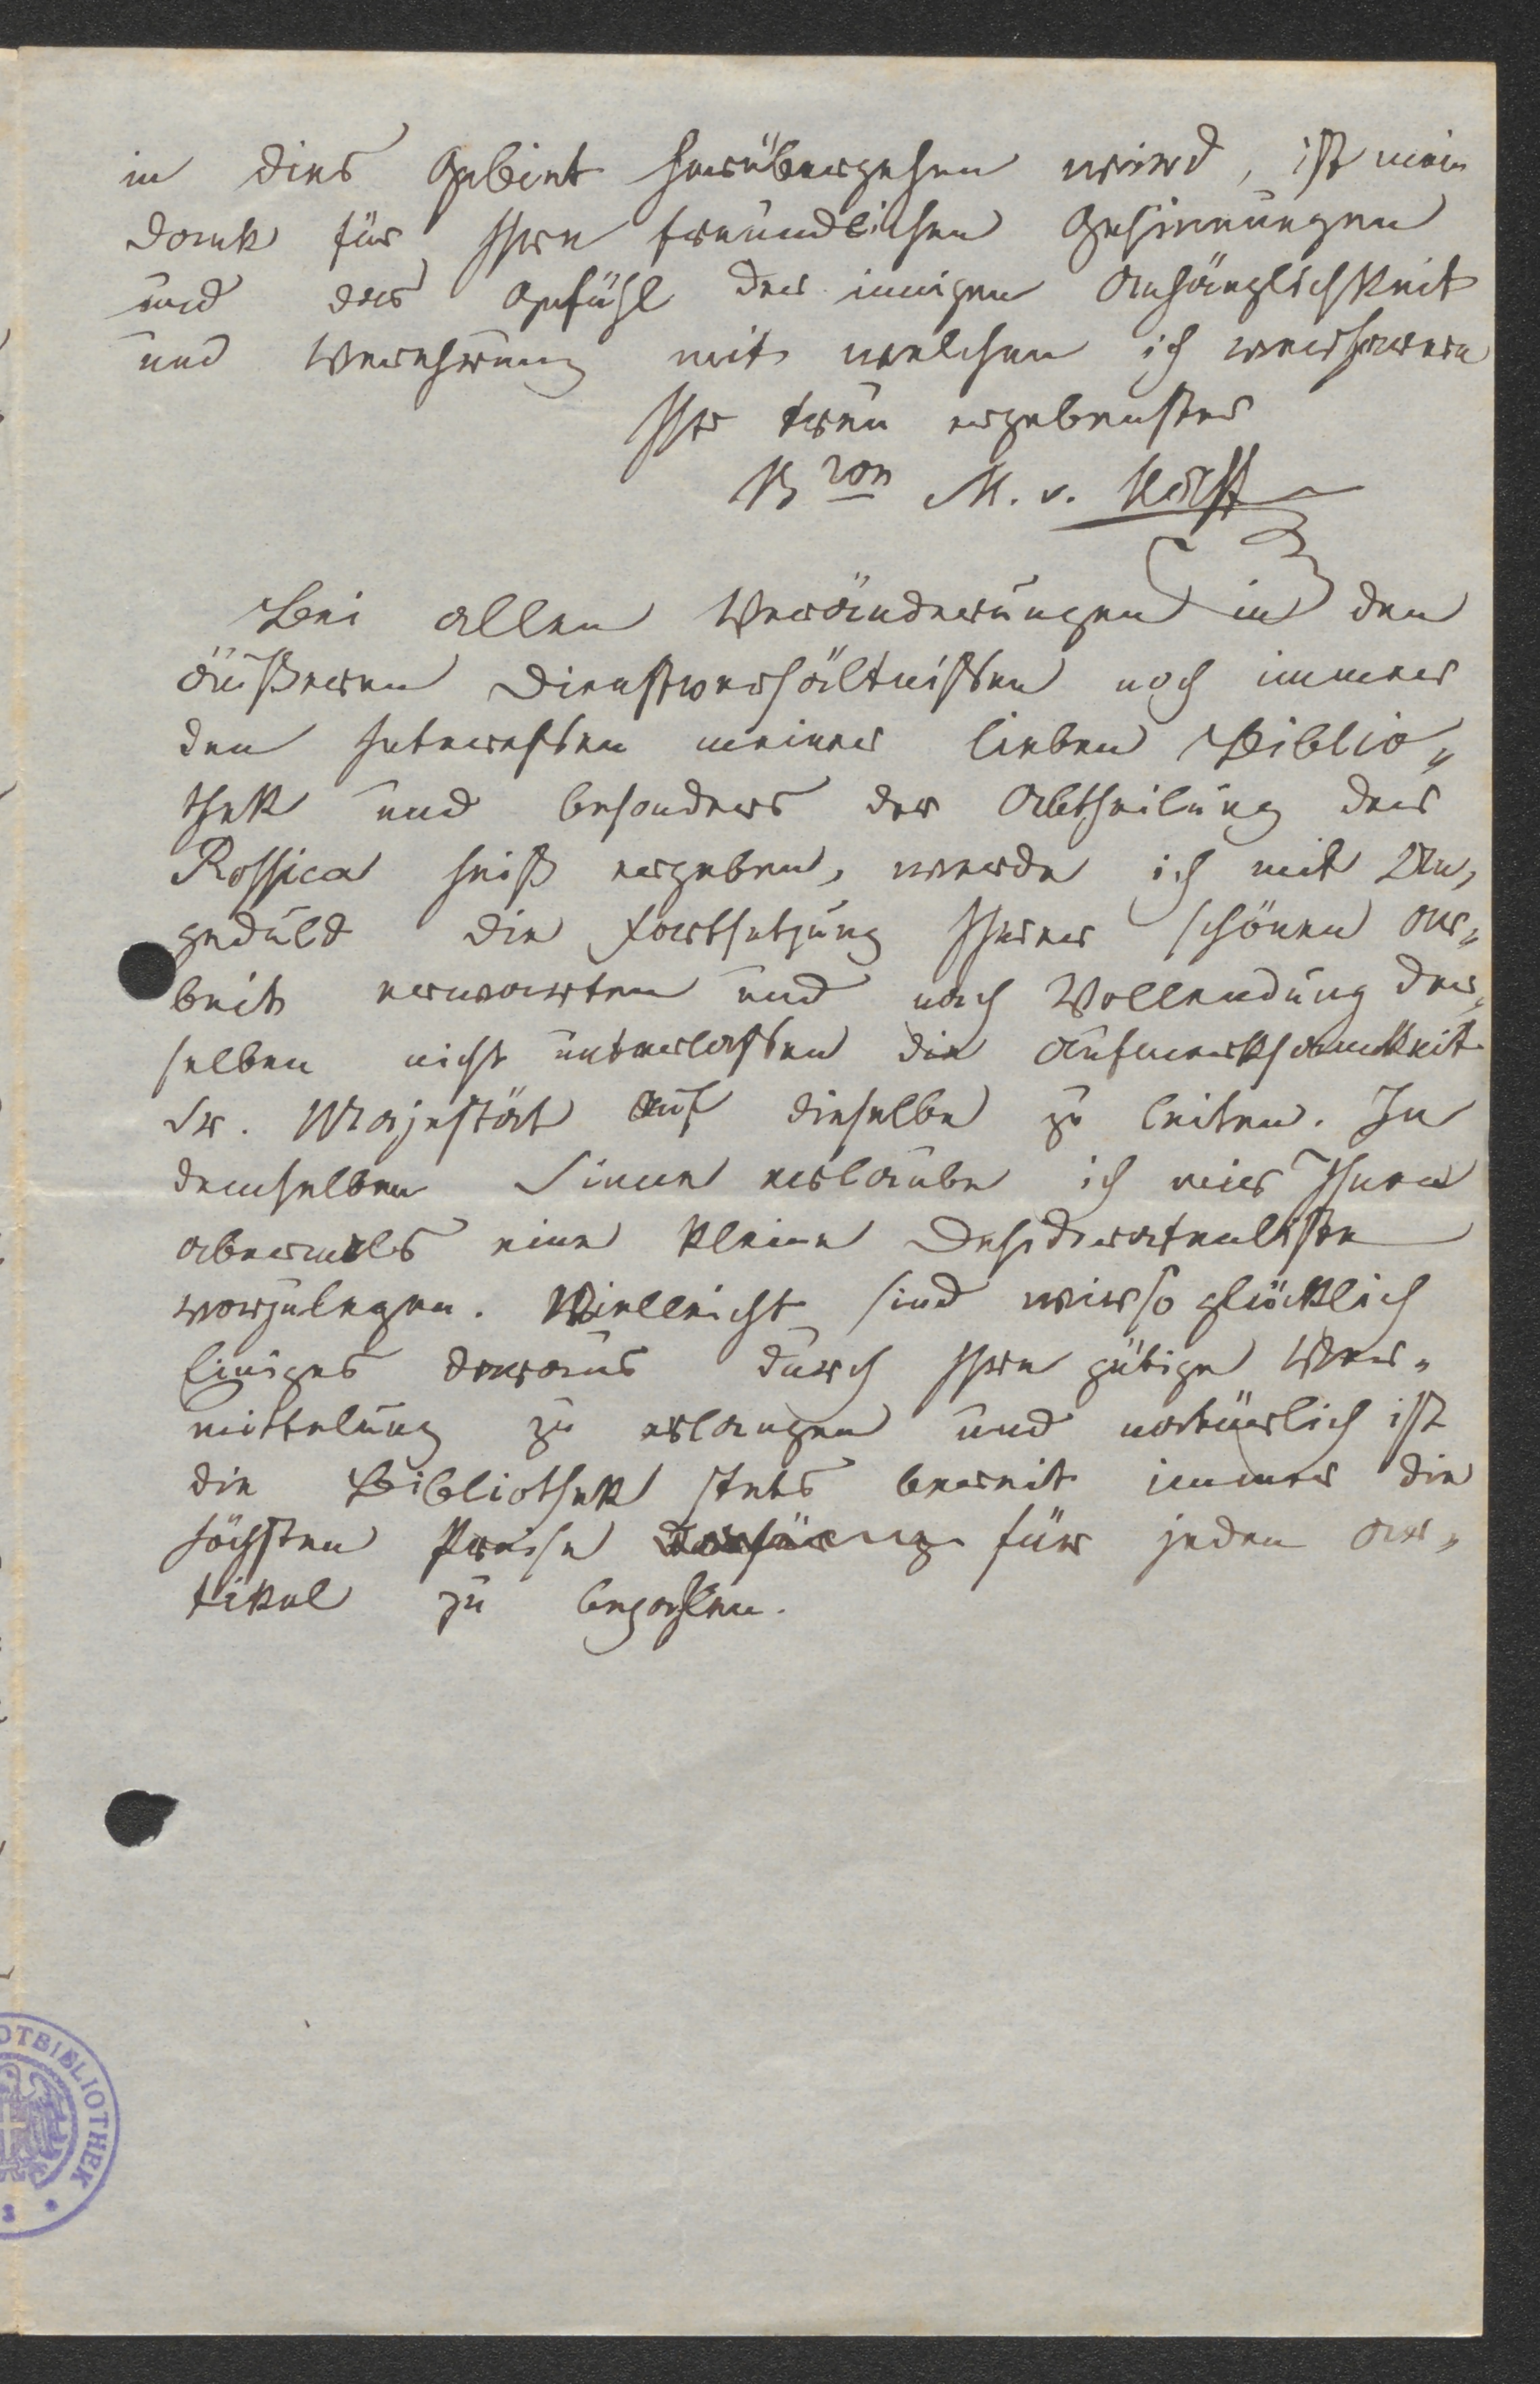 in dies Gebiet herübergehen wird, ist mein
Dank für Ihre freundlichen Gesinnungen
und das Gefühl der innigen Anhänglichkeit
und Verehrung mit welchen ich verharre
Ihr treu ergebenster
Bron M. v. Korff
Bei allen Veränderungen in den
äußeren Dienstverhältnissen noch immer
den Interessen meiner lieben Biblio„
thek und besonders der Abtheilung der
Rossica heiß ergeben, werde ich mit Un„
geduld die Fortsetzung Ihrer schönen Ar„
beit erwarten und nach Vollendung der„
selben nicht unterlassen die Aufmerksamkeit
Sr. Majestät auf dieselbe zu leiten. In
demselben Sinne erlaube ich mir Ihnen
abermals eine kleine Desideratenliste
vorzulegen. Vielleicht sind wir so glücklich
Einiges daraus durch Ihre gütige Ver„
mittelung zu erlangen und natürlich ist
die Bibliothek stets bereit immer die
höchsten Preise für jeden Ar„
tikel zu bezahlen.
OTBIBLIOTHEK